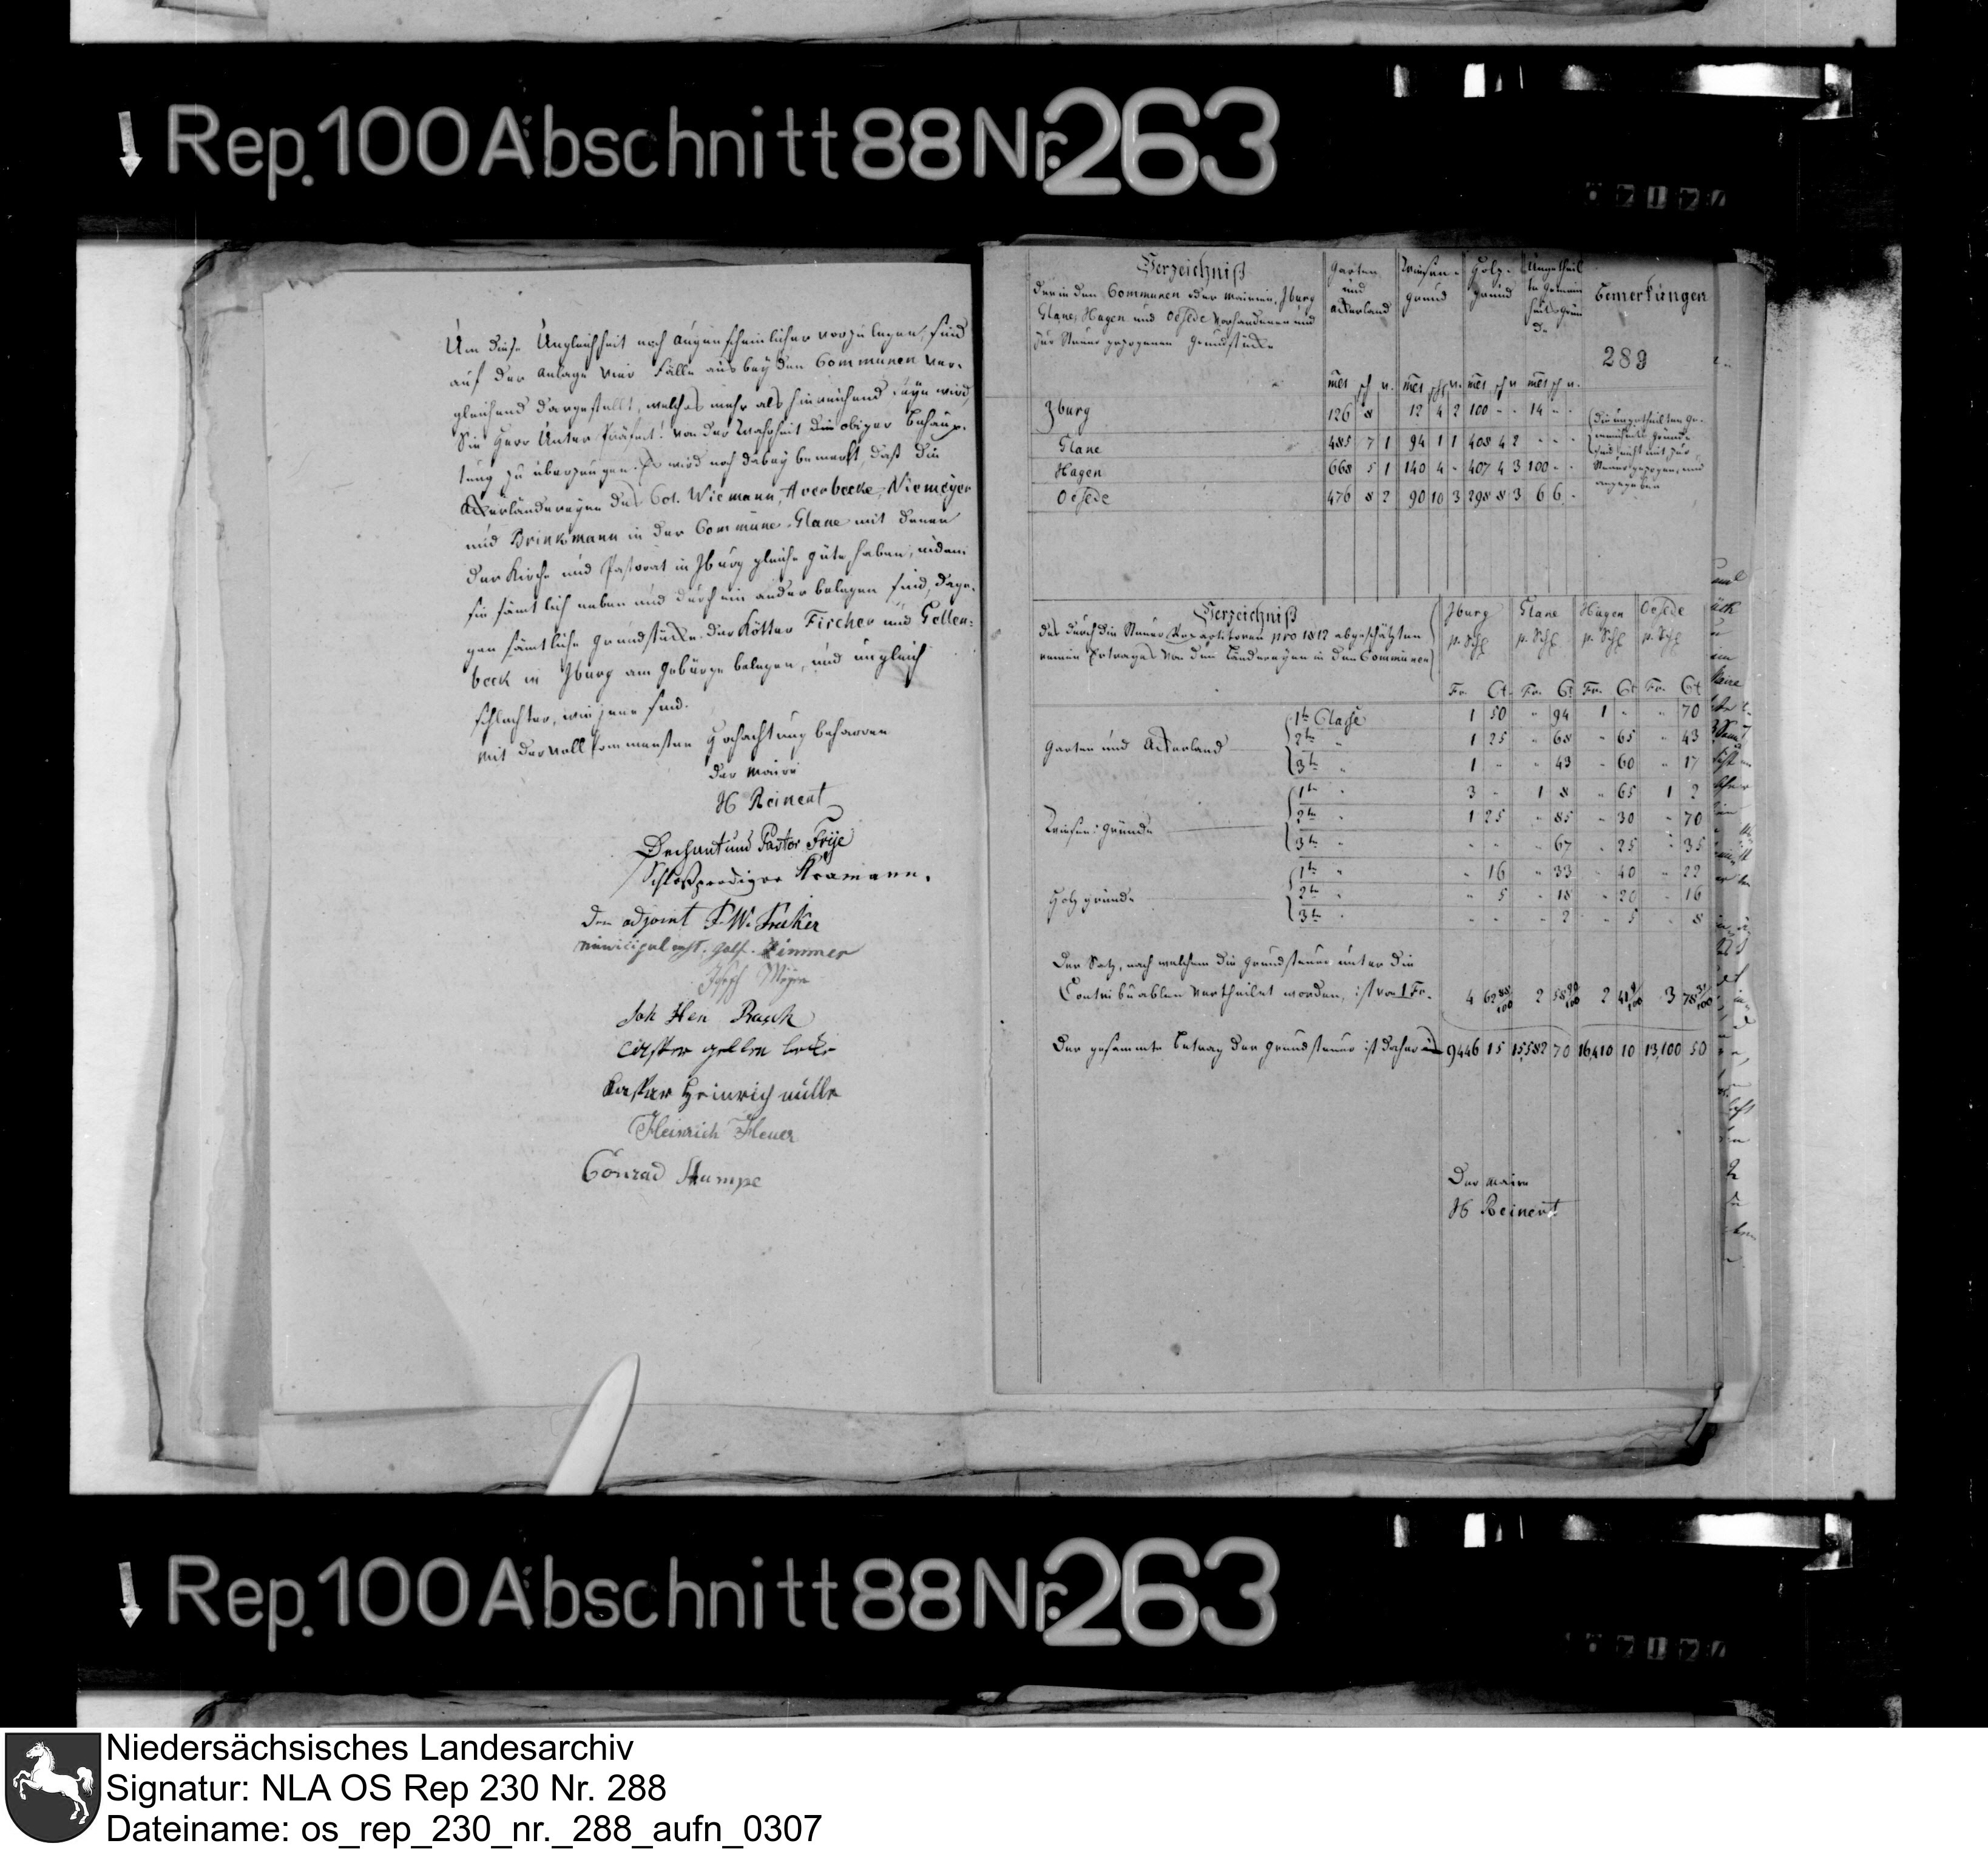 Rep. 100 Abschnitt 88 Nr. 263
Um diese Ungleichheit noch augenscheinlicher vorzulegen, sind
auf der Anlage vier Fälle aus beyden Communen ver-
gleichend dargestellt, welches mehr als hinreichend seyn wird,
Sie Herr Unter Präfect! von der Wahrheit obiger Behaup-
tung zu überzeugen. Es wird noch dabey bemerkt, daß die
Ackerländereyen des Col. Wiemann, Averbecke, Niemeyer
und Brinkmann in der Commune Glane mit denen
der Kirche und Pastorat in Jburg gleiche Güte haben, indem
sie sämtlich neben und durch ein ander belegen sind, dage-
gen sämtliche Grundstücke der Kötter Fircher und Gellen-
beck in Jburg am Gebürge belegen, und ungleich
schlechter, wie jene sind.
Mit der vollkommensten Hochachtung beharren
Der Maire
H Reinert
Dechant und Pastor Frije
Schloßprediger Kramann.
Der adjoint F. W.
Zimmer
Joseph Meyer
Joh Hen Rasch
Casper gellen beck
Caspar Heinrich
Heinrich Heuer
Conrad Stumpe
Verzeichniß
der in den Communen oder Mairien Jburg
Glane, Hagen und Oesede vorhandenen und
zur Steuer gezogenen Grundstücke
Garten und Ackerland
Wiesen-grund
Holz-grund
Ungetheilte Gemein heits Gründe
Bemerkungen
289
mlt sch v. mlt sch v. mlt sch v mlt sch v.
Jburg 126 8 12 4 2 100 - - 14 - -
Glane 485 7 1 94 1 1 408 4 2 - - -
Hagen 668 5 1 140 4 - 407 4 3 100 - -
Oesede 476 8 2 90 10 3 298 8 3 6 6 -
Die ungetheilten Ge-
meinheits Gründe
sind nicht mit zur
Steuer gezogen, und
angegeben
Verzeichniß
des durch die Steuer Repartitoren pro 1812 abgeschätzten
reinen Ertrages von den Ländereyen in den Communen
Jburg Glane Hagen Oesede
p. Schfl p. Schfl p. Schfl p. Schfl
Fr. Ct. Fr. Ct Fr. Ct Fr. Ct
Garten und Ackerland
1te Classe 1 50 " 94 1 - " 70
2te " 1 25 " 68 " 65 " 43
3te " 1 - " 43 " 60 " 17
Wiesen Gründe
1te " 3 - 1 8 " 65 1 2
2te " 1 25 " 85 " 30 " 70
3te " - - " 67 " 25 " 35
Holz gründe
1te " " 16 " 33 " 40 " 22
2te " " 5 " 18 " 20 " 16
3te " - - " 2 " 5 " 8
Der Satz, nach welchem die Grundsteuer unter die
Contribuablen vertheilet worden, ist von 1 Fr. 4 62 88/100 2 58 90/100 2 41 9/100 3 78 31/100
Der gesammte Betrag der Grundsteuer ist daher 9446 15 15,582 70 16,410 10 13,100 50
Der Maire
H Reinert
Rep. 100 Abschnitt 88 Nr. 263
Niedersächsisches Landesarchiv
Signatur: NLA OS Rep 230 Nr. 288
Dateiname: os_rep_230_nr._288_aufn_0307